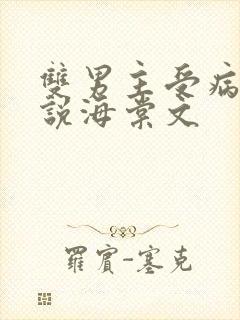 雙男主受病
說海棠文
羅賓-塞克